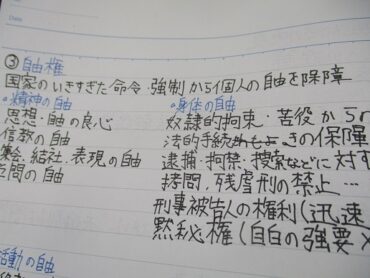 Date
③自由権
国家のいきすぎた命令・強制から個人の自由を保障
・精神の自由
思想・良心の自由
信教の自由
集会、結社、表現の自由
学問の自由
・身体の自由
奴隷的拘束・苦役から
法的手続 きの保障
逮捕・拘禁・捜索などに対す
拷問、残虐刑の禁止…
刑事被告人の権利(迅速
黙秘権(自白の強要
活動の自由